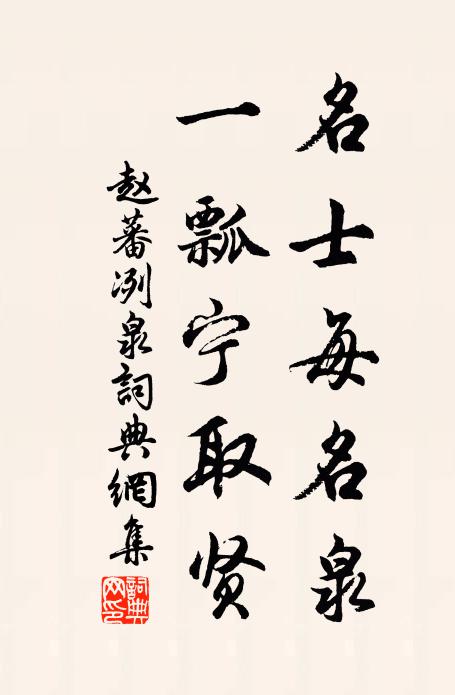 名士每名泉
一瓢宁取贤
赵蕃冽泉詞典網集
詞典网印